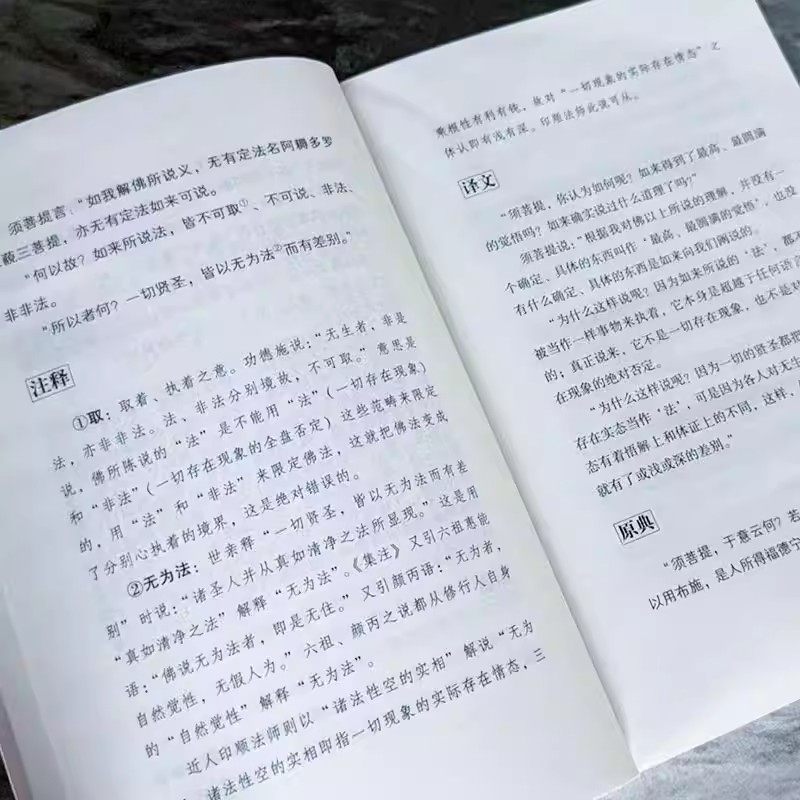 须菩提言：“如我解佛所说义，无有定法名阿耨多罗
藐三菩提，亦无有定法如来可说。
“何以故？如来所说法，皆不可取①、不可说、非法、
非非法。
“所以者何？一切贤圣，皆以无为法②而有差别。”
注释
①取：取着、执着之意。功德施说：“无生者，非是
法，亦非非法。法、非法分别境故，不可取。”意思是
说，佛所陈说的“法”是不能用“法”（一切存在现象）
和“非法”（一切存在现象的全盘否定）这些范畴来限定
的，用“法”和“非法”来限定佛法，这就把佛法变成
了分别心执着的境界，这是绝对错误的。
②无为法：世亲释“一切贤圣，皆以无为法而有差
别”时说：“诸圣人并从真如清净之法所显现。”这是用
“真如清净之法”解释“无为法”。《集注》又引六祖惠能
语：“佛说无为法者，即是无住。”又引颜丙语：“无为者，
自然觉性，无假人为。”六祖、颜丙之说都从修行人自身
的“自然觉性”解释“无为法”。
近人印顺法师则以“诸法性空的实相”解说“无为
诸法性空的实相即指一切现象的实际存在情态，三
乘根性有利有钝，故对“一切现象的实际存在情态”之
体认即有浅有深。印顺法师此说可从。
译文
“须菩提，你认为如何呢？如来得到了最高、最圆满
的觉悟吗？如来确实说过什么道理了吗？”
须菩提说：“根据我对佛以上所说的理解，并没有一
个确定、具体的东西叫作‘最高、最圆满的觉悟’，也没
有什么确定、具体的东西是如来向我们阐说的。
“为什么这样说呢？因为如来所说的‘法’，都不
被当作一样事物来执着，它本身是超越于任何语言
的；真正说来，它不是一切存在现象，也不是对
在现象的绝对否定。
“为什么这样说呢？因为一切的贤圣都把
存在实态当作‘法’，可是因为各人对无生
态有着悟解上和体证上的不同，这样，
就有了或浅或深的差别。”
原典
“须菩提，于意云何？若
以用布施，是人所得福德宁